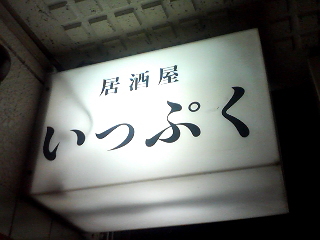 居酒屋
いっぷく